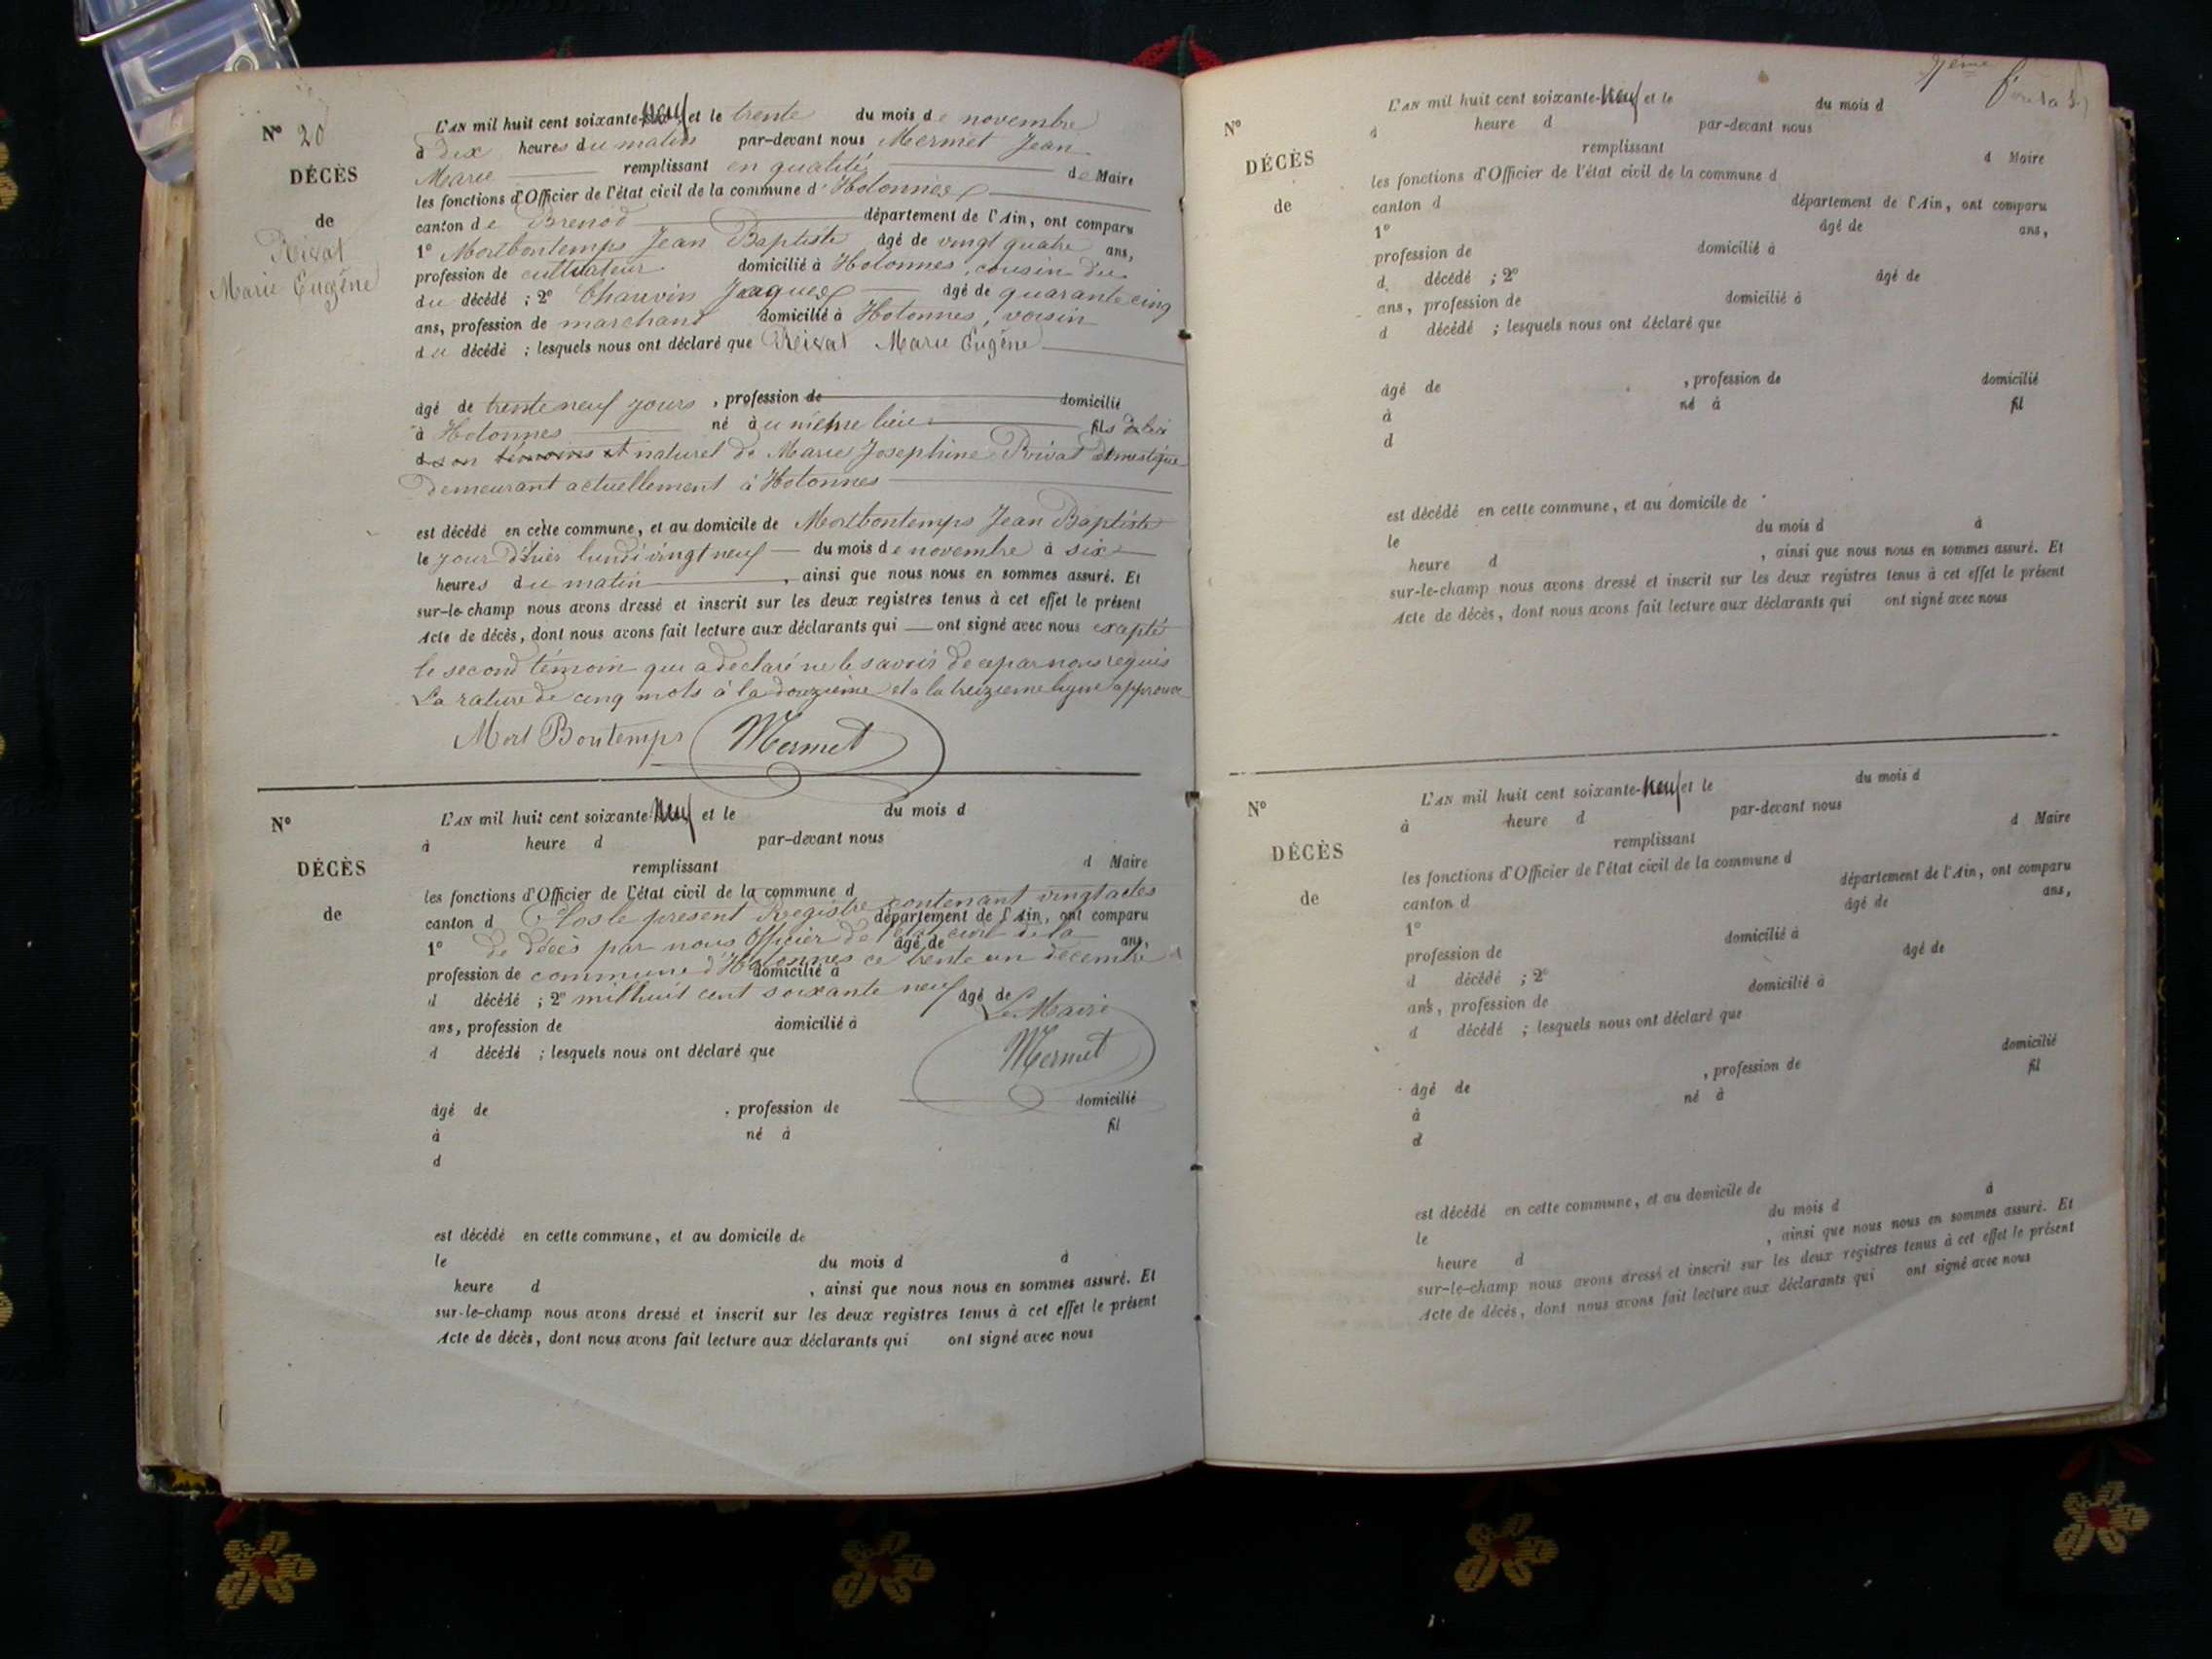 N° 20
DÉCÈS
de
Reival
Marie Eugêne
L'AN mil huit cent soixante-neuf et le trente du mois de novembre
à dix heures du matin par-devant nous Mermet Jean
Marie remplissant en qualité de Maire
les fonctions d'Officier de l'état civil de la commune d'Hotonnes
canton de Brenod département de l'Ain, ont comparu
1° Mortbontemps Jean Baptiste âgé de vingt quatre ans,
profession de cultivateur domicilié à Hotonnes, cousin du
du décédé ; 2° Chauvin Jacques âgé de quarante cinq
ans, profession de marchand domicilié à Hotonnes, voisin
du décédé ; lesquels nous ont déclaré que Reival Marie Eugêne
âgé de trente neuf jours , profession de domicilié
à Hotonnes né au même lieu fils
naturel de Marie Josephine Privat domestique
demeurant actuellement à Hotonnes
est décédé en cette commune, et au domicile de Mortbontemps Jean Baptiste
le jour d'hier lundi vingt neuf du mois de novembre à six
heures du matin , ainsi que nous nous en sommes assuré. Et
sur-le-champ nous avons dressé et inscrit sur les deux registres tenus à cet effet le présent
Acte de décès, dont nous avons fait lecture aux déclarants qui ont signé avec nous excepté
le second témoin qui a declaré ne le savoir de ce par nous requis
La rature de cinq mots à la douzième et a la treizieme ligne approuvé
Mort Bontemps Mermet
N°
DÉCÈS
de
L'AN mil huit cent soixante-neuf et le du mois d
à heure d par-devant nous
remplissant d Maire
les fonctions d'Officier de l'état civil de la commune d
Clos le present Registre contenant vingt actes
canton d département de l'Ain, ont comparu
de décès par nous Officier de l'état civil de la
1° âgé de ans,
commune d'Hotonnes ce trente un décembre
profession de domicilié à
mil huit cent soixante neuf
d décédé ; 2° âgé de
Le Maire
ans, profession de domicilié à
Mermet
d décédé ; lesquels nous ont déclaré que
âgé de , profession de domicilié
à né à fil
d
est décédé en cette commune, et au domicile de
le du mois d à
heure d , ainsi que nous nous en sommes assuré. Et
sur-le-champ nous avons dressé et inscrit sur les deux registres tenus à cet effet le présent
Acte de décès, dont nous avons fait lecture aux déclarants qui ont signé avec nous
N°
DÉCÈS
de
L'AN mil huit cent soixante-neuf et le du mois d
à heure d par-devant nous
remplissant d Maire
les fonctions d'Officier de l'état civil de la commune d
canton d département de l'Ain, ont comparu
1° âgé de ans,
profession de domicilié à
d décédé ; 2° âgé de
ans, profession de domicilié à
d décédé ; lesquels nous ont déclaré que
âgé de , profession de domicilié
à né à fil
d
est décédé en cette commune, et au domicile de
le du mois d à
heure d , ainsi que nous nous en sommes assuré. Et
sur-le-champ nous avons dressé et inscrit sur les deux registres tenus à cet effet le présent
Acte de décès, dont nous avons fait lecture aux déclarants qui ont signé avec nous
N°
DÉCÈS
de
L'AN mil huit cent soixante-neuf et le du mois d
à heure d par-devant nous
remplissant d Maire
les fonctions d'Officier de l'état civil de la commune d
canton d département de l'Ain, ont comparu
1° âgé de ans,
profession de domicilié à
d décédé ; 2° âgé de
ans, profession de domicilié à
d décédé ; lesquels nous ont déclaré que
âgé de , profession de domicilié
à né à fil
d
est décédé en cette commune, et au domicile de
le du mois d à
heure d , ainsi que nous nous en sommes assuré. Et
sur-le-champ nous avons dressé et inscrit sur les deux registres tenus à cet effet le présent
Acte de décès, dont nous avons fait lecture aux déclarants qui ont signé avec nous